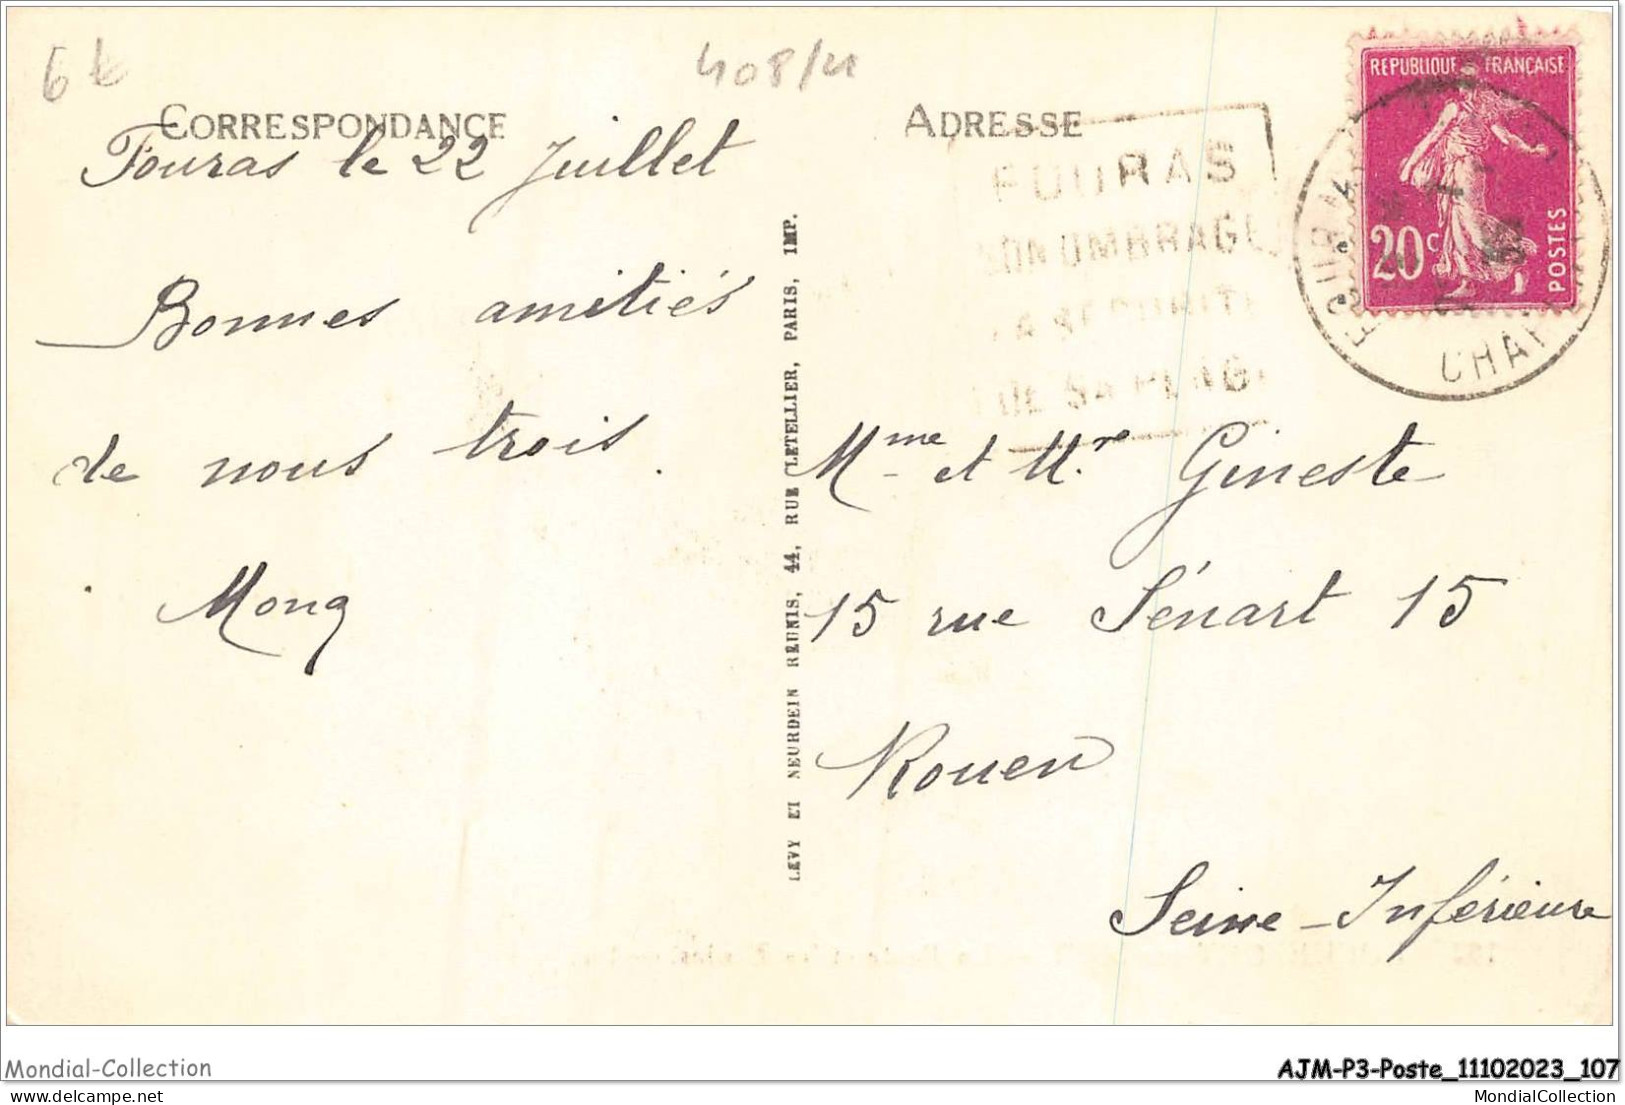 6 €
408/4
CORRESPONDANCE
ADRESSE
REPUBLIQUE FRANÇAISE
20c
POSTES
FOURAS
SON OMBRAGE
LA SECURITE
DE SA PLAGE
CHAR
Fouras le 22 Juillet
Bonnes amitiés
de nous trois.
LEVY ET NEURDEIN RÉUNIS, 44, RUE LETELLIER, PARIS, IMP.
Mme et Mr Gineste
15 rue Sénart 15
Rouen
Seine-Inférieure
Mondial-Collection
AJM-P3-Poste_11102023_107
delcampe.net
MondialCollection